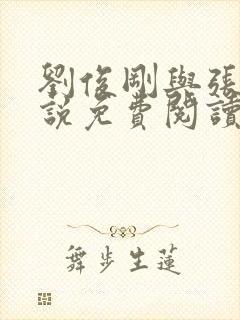 劉俊剛與張
說免費閱讀
舞步生蓮